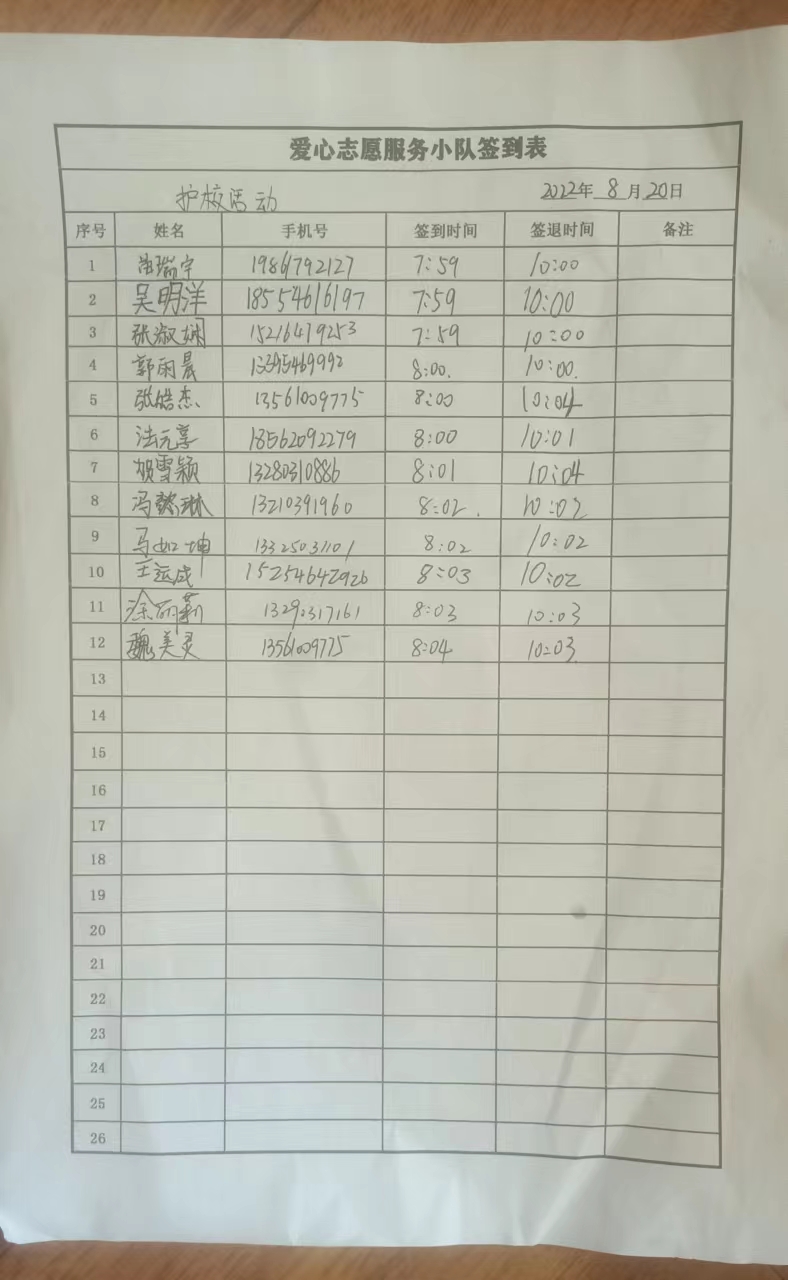 爱心志愿服务小队签到表
护校活动 2022年 8 月 20 日
序号 姓名 手机号 签到时间 签退时间 备注
1 瑞宇 19861792127 7:59 10:00
2 吴明洋 18554616197 7:59 10:00
3 张淑娴 15216419253 7:59 10:00
4 郭雨晨 13395469992 8:00. 10:00.
5 张皓杰 13561009775 8:00 10:04
6 法元享 18562092279 8:00 10:01
7 胡雪颖 13280310886 8:01 10:04
8 冯懿琳 13210391960 8:02. 10:02
9 马如坤 13325031101 8:02 10:02
10 王运成 15254642926 8:03 10:02
11 涂丽莉 13292317161 8:03 10:03
12 魏美灵 13561009775 8:04 10:03
13
14
15
16
17
18
19
20
21
22
23
24
25
26